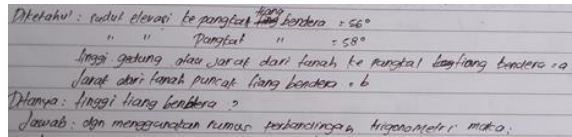 Diketahui : sudut elevasi ke pangkal tiang bendera = 56°
" " Pangkal " = 58°
tinggi gedung atau jarak dari tanah ke pangkal tiang bendera = a
Jarak dari tanah puncak tiang bendera = b
Ditanya : tinggi tiang bendera ?
Jawab : dgn menggunakan rumus perbandingan trigonometri maka :